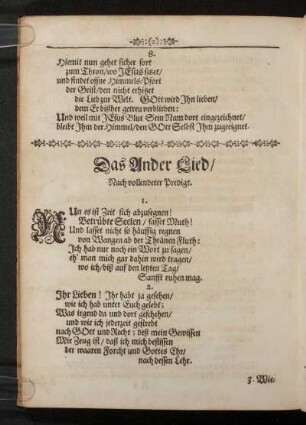 8.
Hiemit nun gehet sicher fort
zum Thron/wo JEsus sitzet/
und findet offne Himmels-Pfort
der Geist/den nicht erhitzet
die Lieb zur Welt. GOtt wird Ihn lieben/
dem Er bißher getreu verblieben:
Und weil mit JEsus Blut Sein Nam dort eingezeichnet/
bleibt Ihm der Himmel/den GOtt Selbst Ihm zugeeignet.
Das Ander Lied/
Nach vollendeter Predigt.
1.
NUn es ist Zeit sich abzusegnen!
Betrübte Seelen/ fasset Muth!
Und lasset nicht so häuffig regnen
von Wangen ab der Thränen Fluth:
Ich hab nur noch ein Wort zu sagen/
eh' man mich gar dahin wird tragen/
wo ich/biß auf den letzten Tag/
Sanfft ruhen mag.
2.
Ihr Lieben! Ihr habt ja gesehen/
wie ich hab unter Euch gelebt:
Was irgend da und dort geschehen/
und wie ich jederzeit gestrebt
nach GOtt und Recht: deß mein Gewissen
Mir Zeug ist/ daß ich mich beflissen
der waaren Forcht und Gottes Ehr/
nach dessen Lehr.
3. Wie